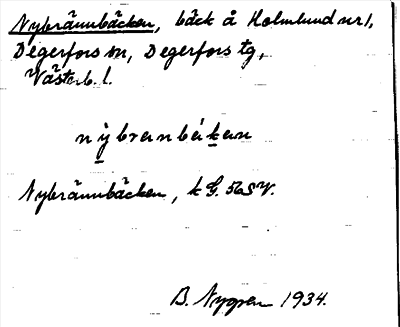 Nybrännbäcken, bäck å Holmlund nr 1,
Degerfors sn, Degerfors tg,
Västerb. l.
nỳbrɛnbɛ́kɛn
Nybrännbäcken, k G. 56 SV.
B. Nygren 1934.